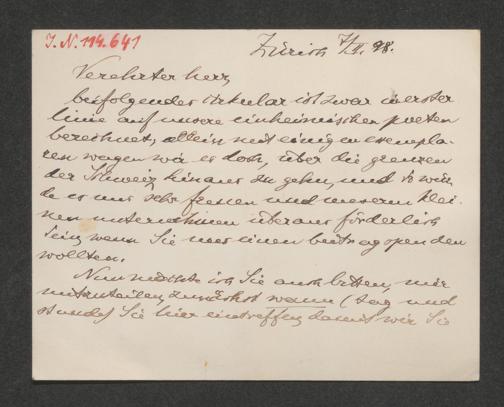 I. N. 114.641
Zürich 7/II. 98.
Verehrter herr
beifolgendes zirkular ist zwar in erster
linie auf unsere einheimischen poeten
berechnet, allein mit einigen exempla-
ren wagen wir es doch, über die grenzen
der Schweiz hinaus zu gehn, und es wür-
de es uns sehr freuen und unserm klei-
nen unternehmen überaus förderlich
sein, wenn Sie uns einen beitrag spenden
wollten.
Nun möchte ich Sie auch bitten, mir
mitzuteilen, zunächst wann (tag und
stunde) Sie hier eintreffen, damit wir Sie